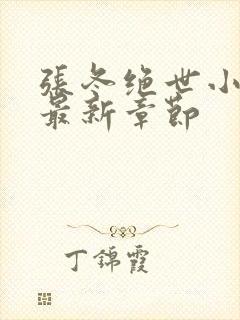 張冬绝世小
最新章節
丁錦霞